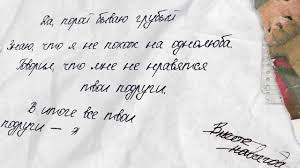 Да, порой бываю грубый
Знаю, что я не похож на однолюба
Говорил, что мне не нравятся
твои подруги.
В итоге все твои
подруги —